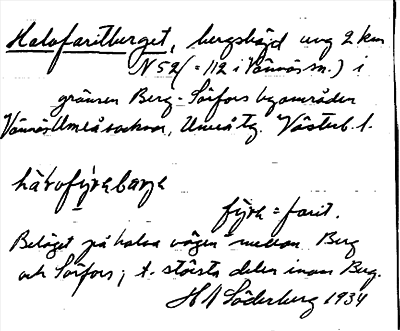 Halvfaritberget, bergshöjd ung 2 km
N 52 (= 112 i Vännäs sn.) i
gränsen Berg - Sörfors byområden
Vännäs Umeå socknar, Umeå tg. Västerb. l.
hàlvofỳrebærje
fyre = farit.
Beläget på halva vägen mellan Berg
och Sörfors; t. största delen inom Berg.
H A Söderberg 1934